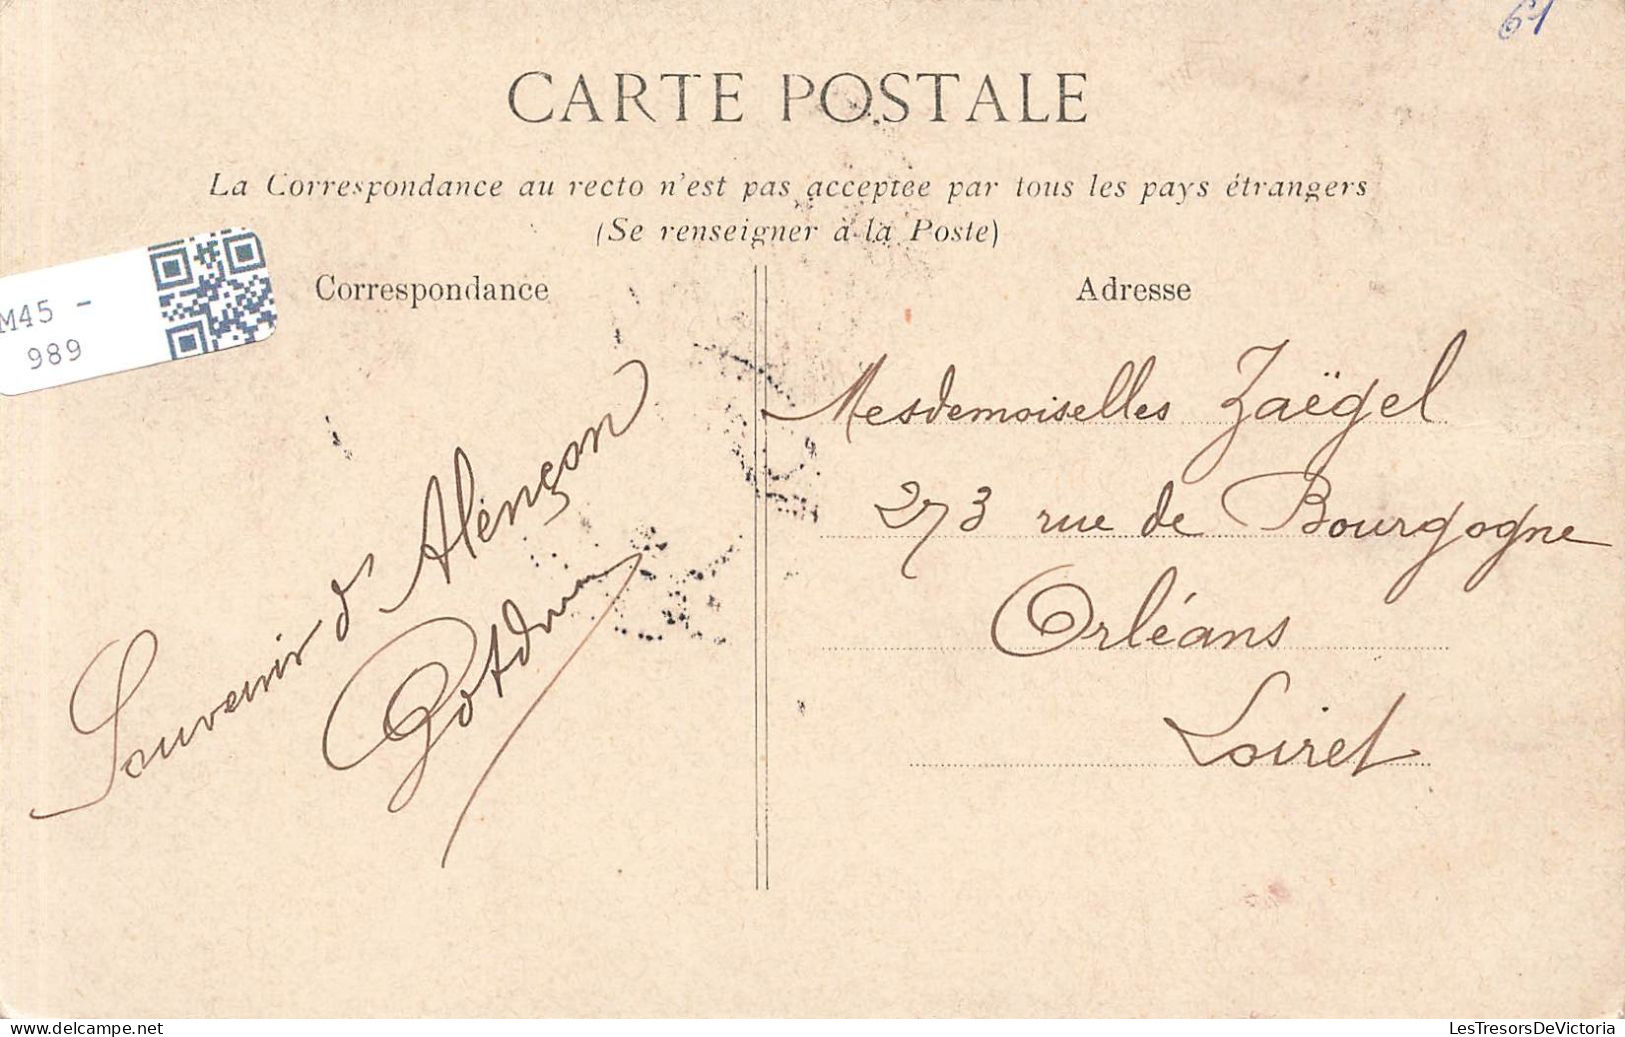 61
CARTE POSTALE
La Correspondance au recto n'est pas acceptée par tous les pays étrangers
(Se renseigner à la Poste)
M45 -
989
Correspondance
Souvenir d'Alençon
Adresse
Mesdemoiselles Zaëgel
273 rue de Bourgogne
Orléans
Loiret
delcampe.net
LesTresorsDeVictoria